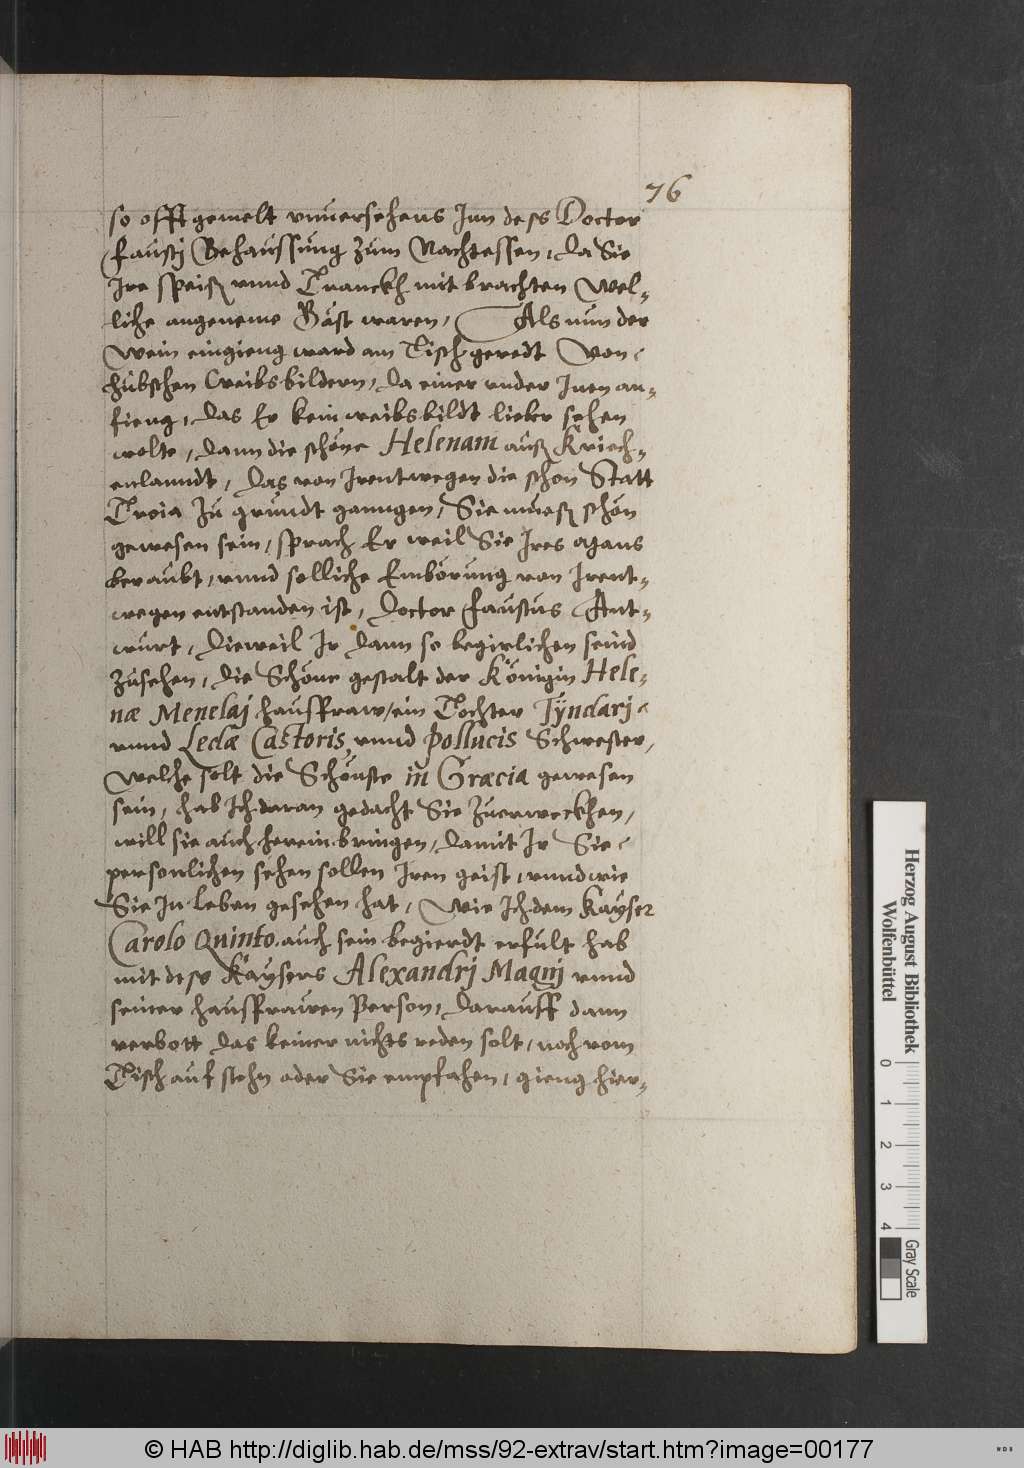 76
so offt gemelt vnuersehens Inn dess Doctor
Faustj Behaussung zum Nachtessen, da Sie
Ire speiß vnnd Tranckh mit brachten Wel-
liche angeneme Gäst waren, Als nun der
Wein eingieng ward am Tisch geredt Von
hübschen Weibsbildern, da einer vnder Inen an-
fieng, das Er kein weibsbildt lieber sehen
wolte, dann die schöne Helenam auß Kriech-
enlanndt, das von Irentwegen die schon Statt
Troia zu grundt ganngen, Sie mueß schön
gewesen sein, sprach Er weil Sie Ires Mans
beraubt, vnnd solliche Embörung von Irent-
wegen entstanden ist, Doctor Faustus Ant-
wurt, dieweil Ir dann so begirlichen seind
zusehen, die Schöne gestalt der Königin Hele-
næ Menelaj hausfraw, ein Tochter Tÿndarj
vnnd Ledæ Castoris, vnnd Pollucis Schwester,
Welche solt die Schönste in Græcia gewesen
sein, hab Ich daran gedacht Sie zuerweckhen,
will sie auch herein bringen, damit Ir Sie
personlichen sehen sollen Iren geist, vnnd wie
Sie In leben gesehen hat, Wie Ich dem Kayser
Carolo Quinto auch sein begierdt erfult hab
mit dess Kaysers Alexandrj Magnj vnnd
seiner hausfrawen Person, darauff dann
verbott das keiner nichts reden solt, noch vom
Tisch auf stehn oder Sie empfahen, gieng hier-
Herzog August Bibliothek
Wolfenbüttel
0 1 2 3 4
Gray Scale
© HAB http://diglib.hab.de/mss/92-extrav/start.htm?image=00177
WDB